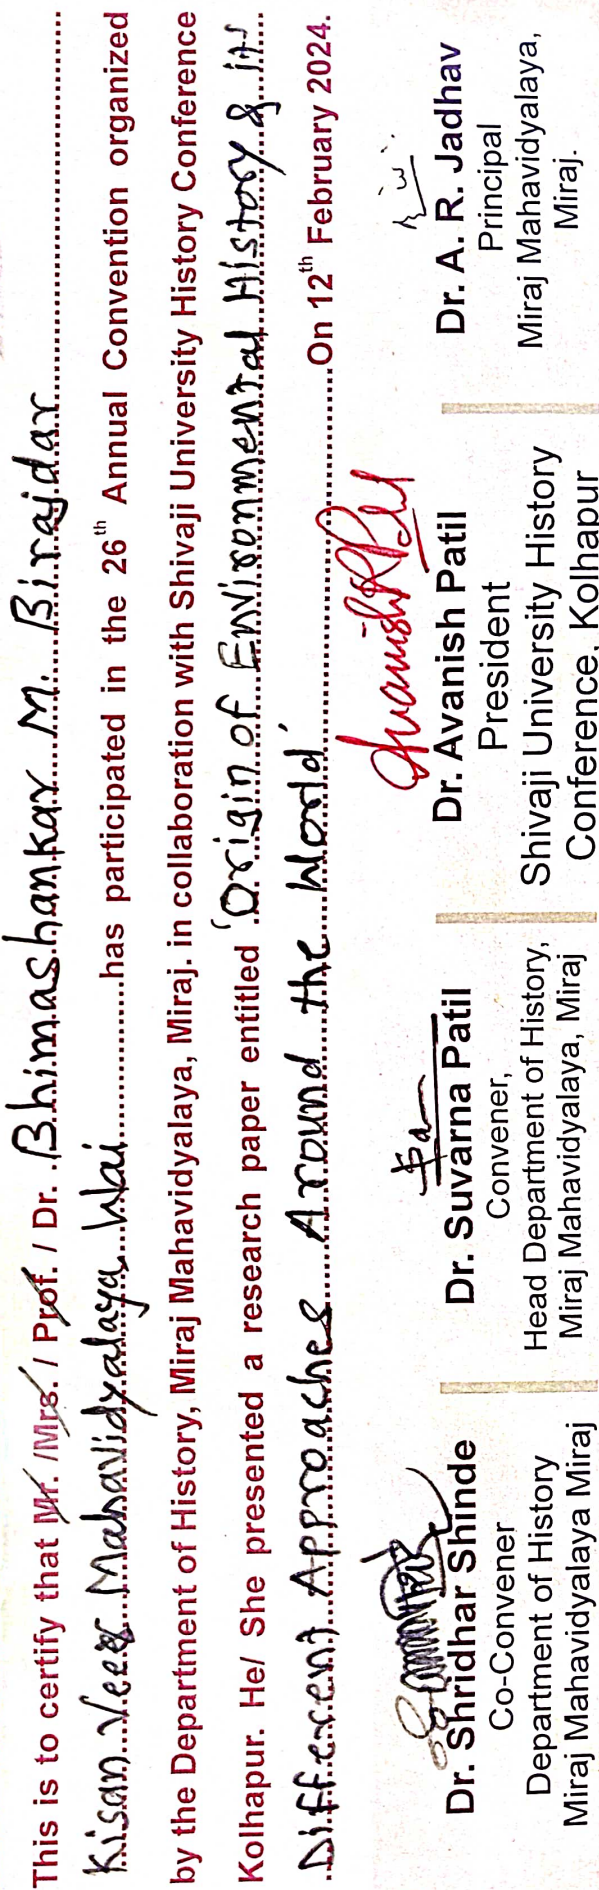 This is to certify that Mr. /Mrs. / Prof. / Dr. Bhimashankar M. Birajdar
Kisan Veer Mahavidyalaya, Wai has participated in the 26th Annual Convention organized
by the Department of History, Miraj Mahavidyalaya, Miraj. in collaboration with Shivaji University History Conference
Kolhapur. He/ She presented a research paper entitled 'Origin of Environmental History & its
Different Approaches Around the World' On 12th February 2024.
Dr. Shridhar Shinde
Co-Convener
Department of History
Miraj Mahavidyalaya Miraj
Dr. Suvarna Patil
Convener,
Head Department of History,
Miraj Mahavidyalaya, Miraj
Dr. Avanish Patil
President
Shivaji University History
Conference, Kolhapur
Dr. A. R. Jadhav
Principal
Miraj Mahavidyalaya,
Miraj.